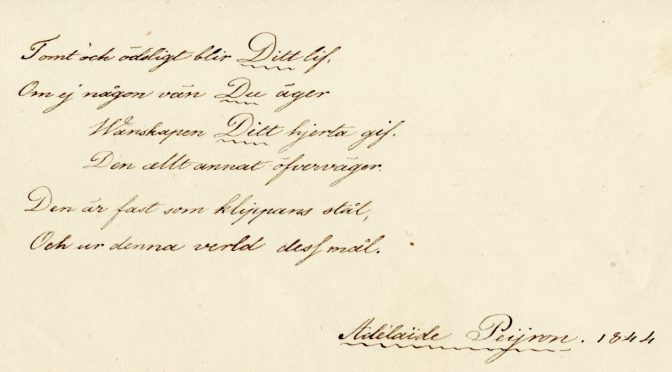 Tomt och ödsligt blir Ditt lif,
Om ej någon vän Du äger
Wänskapen Ditt hjerta gif.
Den allt annat öfverväger.
Den är fast som klippans stål,
Och ur denna verld dess mål.
Adelaïde Peijron. 1844